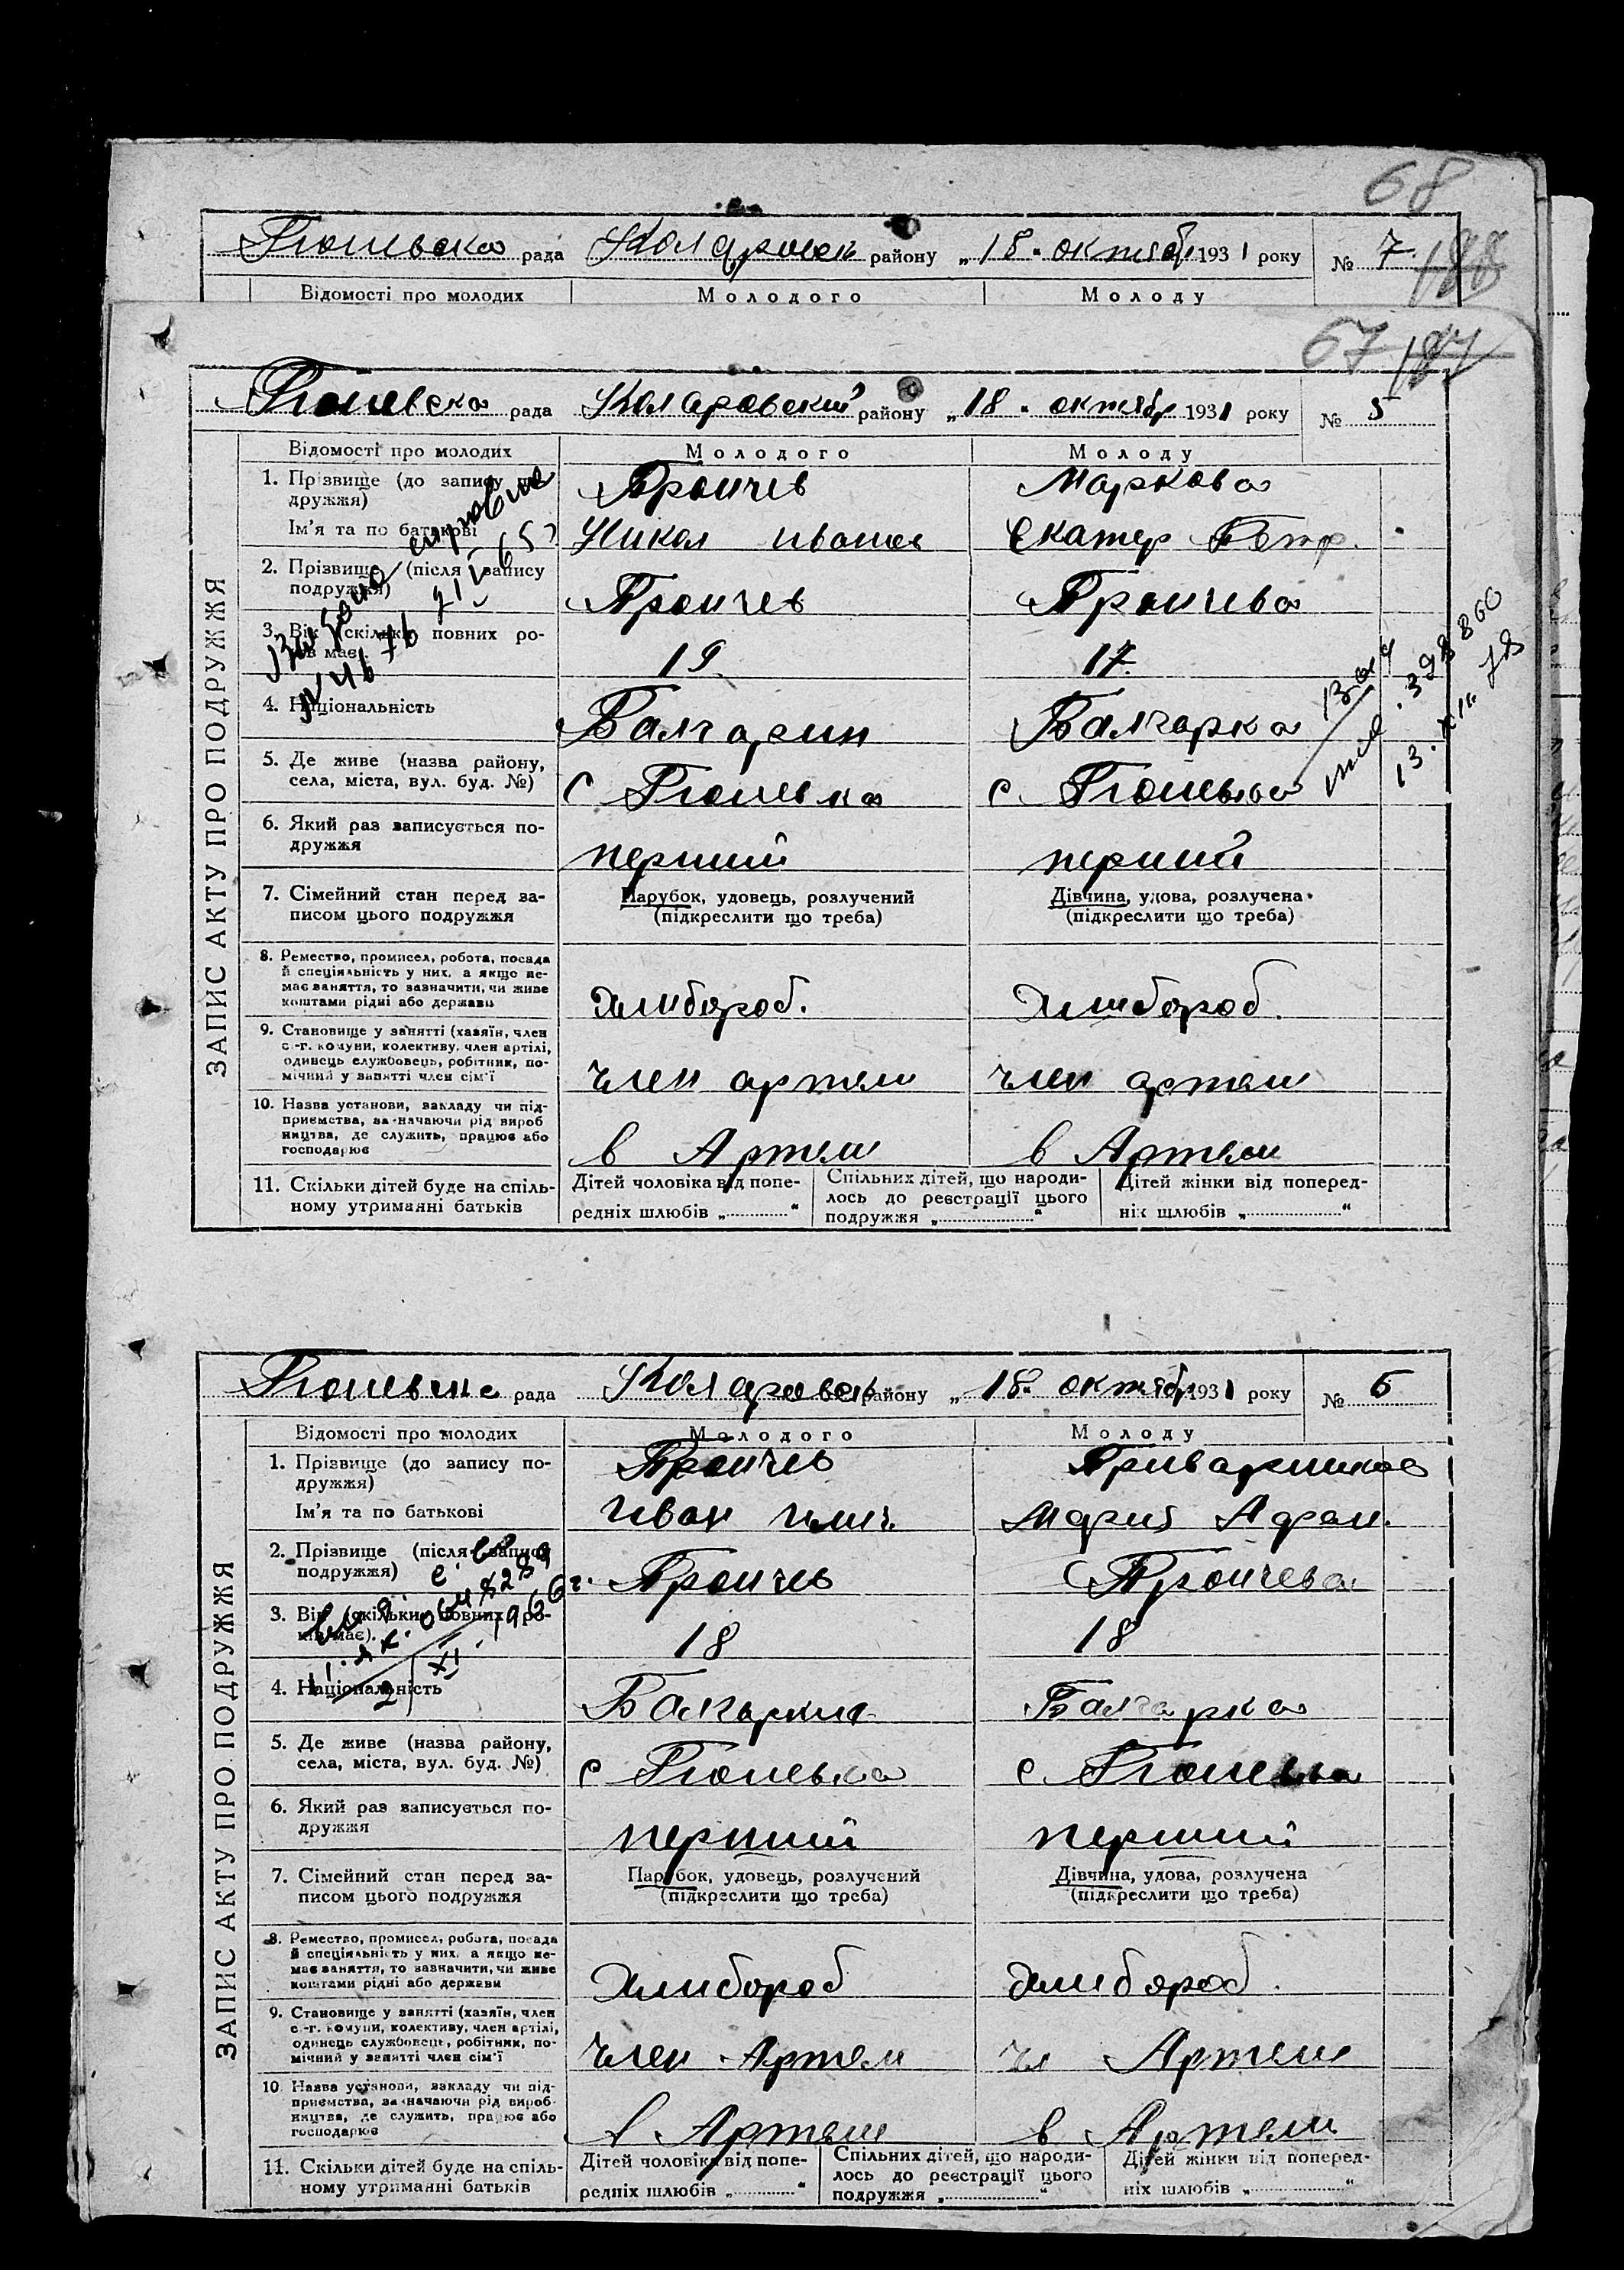 68
Гюневска рада Коларовск района „18" октябр 1931 року № 7
188
Відомості про молодих Молодого Молоду
67
187
Гюневска рада Коларовский району „18" октябр 1931 року № 5
ЗАПИС АКТУ ПРО ПОДРУЖЖЯ
Відомості про молодих Молодого Молоду
1. Прізвище (до запису по-
дружжя) Тройчев Маркова
Ім'я та по батькові Никол Иванов Екатер Петр.
2. Прізвище (після запису
подружжя) Тройчев Тройчева
3. Вік (скільки повних ро-
ків має) 19 17
4. Національність Балгарин Балгарка
5. Де живе (назва району,
села, міста, вул. буд. №) с Гюневка с. Гюневка
6. Який раз записується по-
дружжя перший перший
7. Сімейний стан перед за-
писом цього подружжя
Парубок, удовець, розлучений
(підкреслити що треба)
Дівчина, удова, розлучена
(підкреслити що треба)
8. Ремество, промисел, робота, посада
й спеціяльність у них, а якщо не-
має заняття, то зазначити, чи живе
коштами рідні або держави хлибороб. хлибороб.
9. Становище у занятті (хазяїн, член
с.-г. комуни, колективу, член артілі,
одинець службовець, робітник, по-
мічний у занятті член сім'ї член артели член артели
10. Назва установи, закладу чи під-
приємства, зазначаючи рід вироб
ництва, де служить, працює або
господарює в Артели в Артели
11. Скільки дітей буде на спіль-
ному утриманні батьків
Дітей чоловіка від попе-
редніх шлюбів „ "
Спільних дітей, що народи-
лось до реєстрації цього
подружжя „ "
Дітей жінки від поперед-
ніх шлюбів „ "
Гюневск рада Коларовск району „18" октябр 1931 року № 6
ЗАПИС АКТУ ПРО ПОДРУЖЖЯ
Відомості про молодих Молодого Молоду
1. Прізвище (до запису по-
дружжя) Тройчев
Ім'я та по батькові Иван Илич. Мария Афан.
2. Прізвище (після запису
подружжя) Тройчев Тройчева
3. Вік (скільки повних ро-
ків має). 18 18
4. Національність Балгарин Балгарка
5. Де живе (назва району,
села, міста, вул. буд. №) с Гюневка с. Гюневка
6. Який раз записується по-
дружжя перший перший
7. Сімейний стан перед за-
писом цього подружжя
Парубок, удовець, розлучений
(підкреслити що треба)
Дівчина, удова, розлучена
(підкреслити що треба)
8. Ремество, промисел, робота, посада
й спеціяльність у них, а якщо не-
має заняття, то зазначити, чи живе
коштами рідні або держави хлибороб хлибороб.
9. Становище у занятті (хазяїн, член
с.-г. комуни, колективу, член артілі,
одинець службовець, робітник, по-
мічний у занятті член сім'ї член Артели чл Артели
10. Назва установи, закладу чи під-
приємства, зазначаючи рід вироб-
ництва, де служить, працює або
господарює в Артели в Артели
11. Скільки дітей буде на спіль-
ному утриманні батьків
Дітей чоловіка від попе-
редніх шлюбів „ "
Спільних дітей, що народи-
лось до реєстрації цього
подружжя „ "
Дітей жінки від поперед-
ніх шлюбів „ "